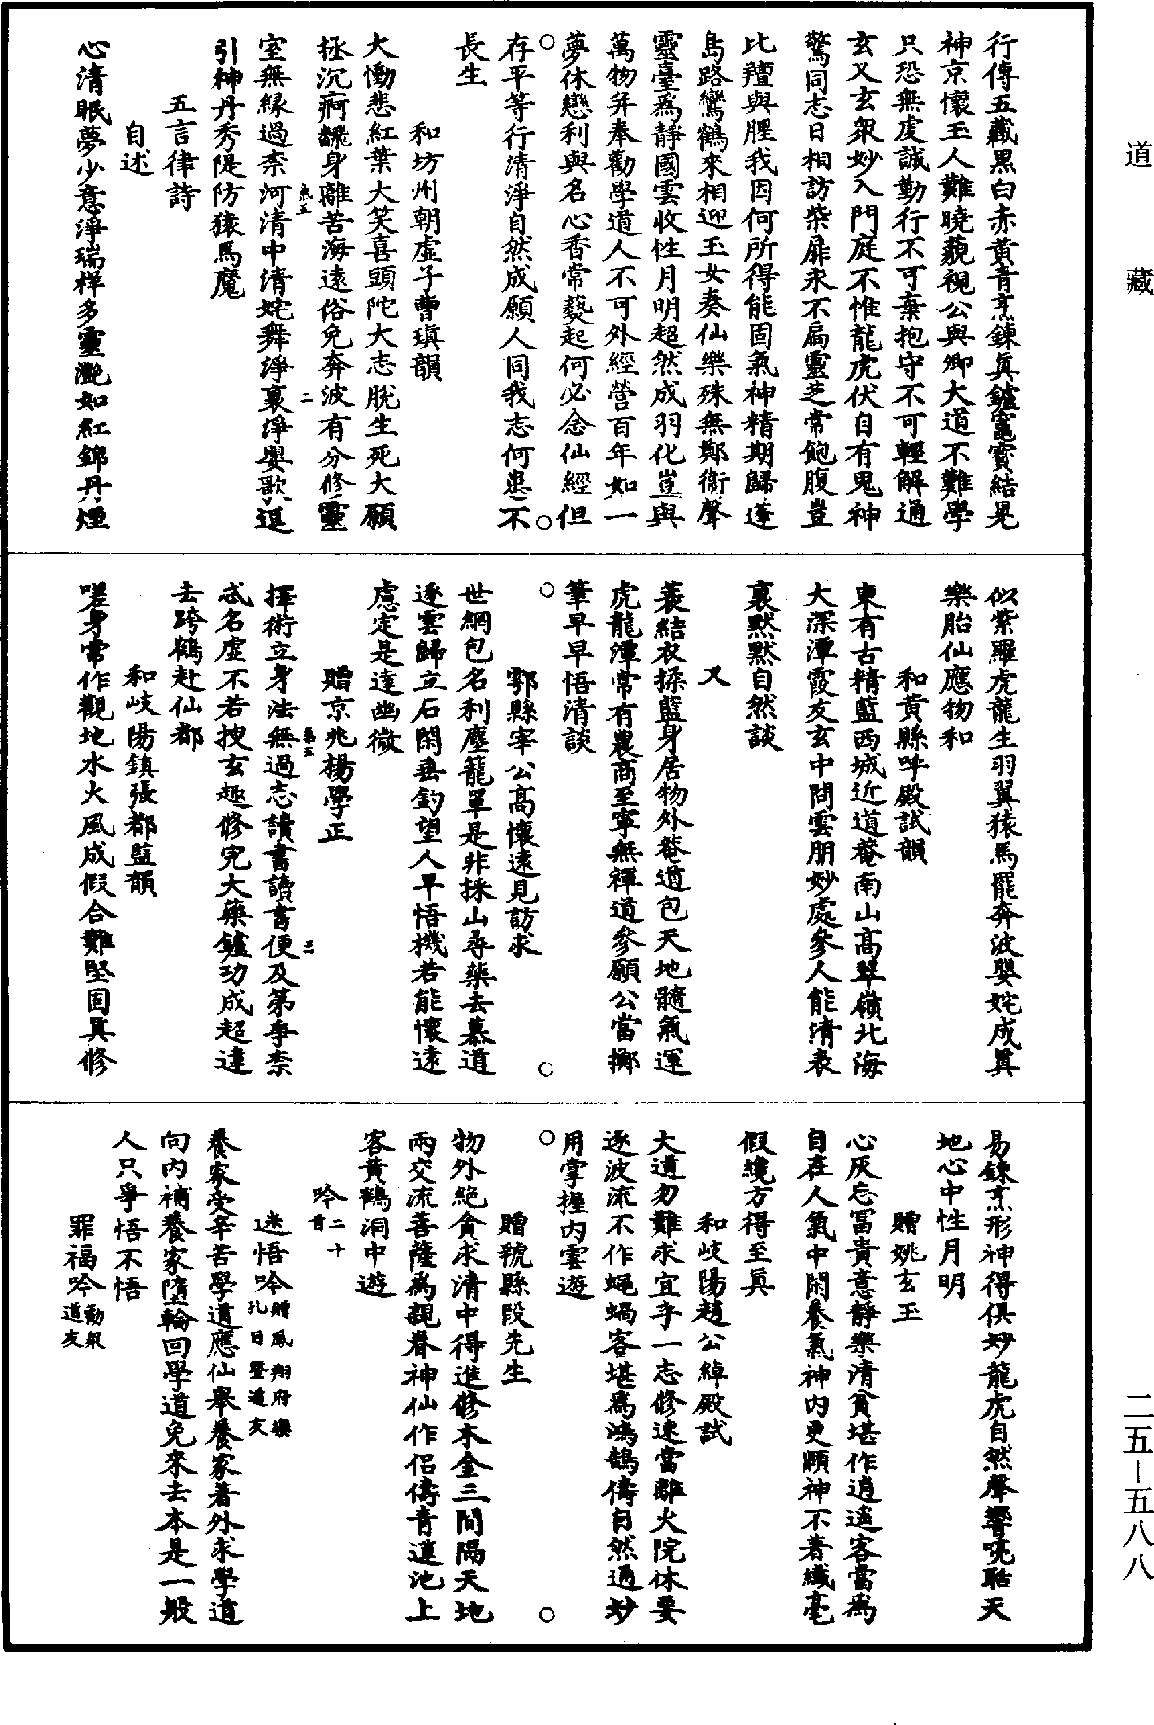 道藏
行傳五藏黑白赤黃青烹鍊真鑪竈寶結晃
神京懷玉人難曉藐視公與卿大道不難學
只恐無虔誠勤行不可棄抱守不可輕解通
玄又玄眾妙入門庭不惟龍虎伏自有鬼神
驚同志日相訪柴扉永不扃靈芝常飽腹豈
比羶與腥我因何所得能固氣神精期歸蓬
島路鸞鶴來相迎玉女奏仙樂殊無鄭衛聲
靈臺為靜國雲收性月明超然成羽化豈與
萬物并奉勸學道人不可外經營百年如一
夢休戀利與名心香常爇起何必念仙經但
存平等行清淨自然成願人同我志何患不
長生
和坊州朝虛子曹瑱韻
大慟悲紅葉大笑喜頭陀大志脫生死大願
拯沉痾饑身離苦海遠俗免奔波有分修靈
室無緣過柰河清中清姹舞淨裏淨嬰歌遥
引神丹秀隄防猿馬魔
五言律詩
自述
心清眠夢少意淨瑞祥多靈灔如紅錦丹煙
似紫羅虎龍生羽翼猿馬罷奔波嬰姹成真
樂胎仙應物和
和黃縣呼殿試韻
東有古精藍西城近道菴南山高翠嶺北海
大深潭霞友玄中問雲朋妙處參人能清表
裏默默自然談
又
蓑結衣挼藍身居物外菴道包天地髓氣運
虎龍潭常有農商至寧無禪道參願公當擲
筆早早悟清談
鄠縣宰公高懷遠見訪求
世網包名利塵籠罩是非採山尋藥去慕道
逐雲歸立石閑垂釣望人早悟機若能懷遠
慮定是達幽微
贈京兆楊學正
擇術立身法無過志讀書讀書便及第爭柰
忒名虛不若搜玄趣修完大藥鑪功成超達
去跨鶴赴仙都
和岐陽鎮張都監韻
嗟身常作觀地水火風成假合難堅固真修
易鍊烹形神得俱妙龍虎自然聲響喨聒天
地心中性月明
贈姚玄玉
心灰忘冨貴意靜樂清貧堪作逍遙客當為
自在人氣中閑養氣神內更頤神不著纖毫
假纔方得至真
和岐陽趙公綽殿試
大道勿難求宜乎一志修速當離火院休要
逐波流不作蝇蝸客堪為鴻鵠儔自然通妙
用掌握內雲遊
贈虢縣段先生
物外絕貪求清中得進修木金三間隔天地
兩交流菩薩為親眷神仙作侶儔青蓮池上
客黃鶴洞中遊
吟二十首
迷悟吟贈鳳翔府欒孔目暨道友
養家受辛苦學道應仙舉養家著外求學道
向內補養家墮輪回學道免來去本是一般
人只爭悟不悟
罪福吟勸眾道友
二五—五八八